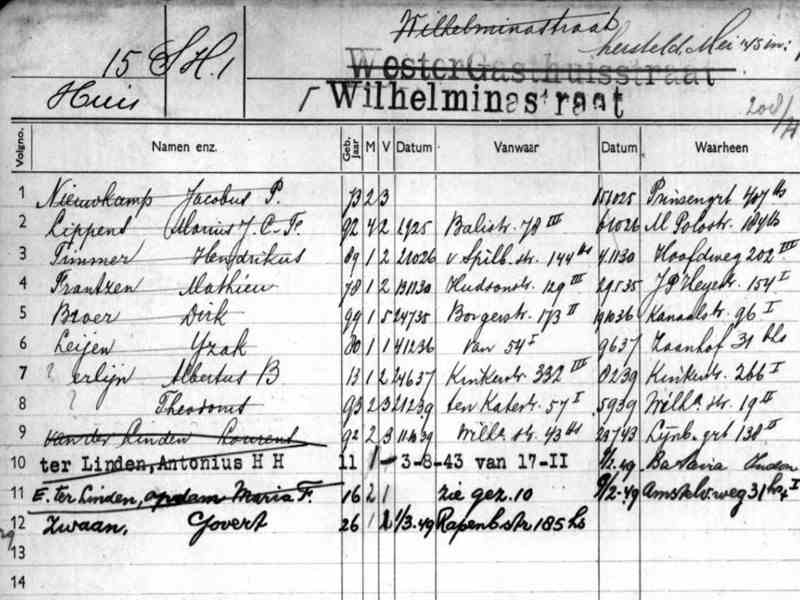 Wilhelminastraat
hersteld Mei '45 in:
15 S H. 1
WesterGasthuisstraat
Huis
Wilhelminastraat
Volgno. Namen enz. Geb. jaar M V Datum Vanwaar Datum Waarheen
1 Nieuwkamp Jacobus P. 73 2 3 151025 Prinsengrt 407 hs
2 Lippens Marius J. C. F. 92 4 2 1925 Balistr. 78 III 61026 M Polostr. 184 hs
3 Timmer Hendrikus 89 1 2 21026 v Spilb. str. 144 hs 41130 Hoofdweg 202 III
4 Frantzen Mathieu 78 1 2 131130 Hudsonstr. 129 III 29535 J P Heyestr. 154 I
5 Broer Dirk 99 1 5 24735 Borgerstr. 173 II 91036 Kanaalstr. 96 I
6 Leijen Yzak 80 1 1 41236 54 I 9637 Zaanhof 31 hs
7 ? erlijn Albertus B 13 1 2 24637 Kinkerstr. 332 III 8239 Kinkerstr. 266 I
8 ? Theodorus 93 2 3 21239 ten Katestr. 57 I 5939 Wilh. str. 19 II
9 van der Linden Lourens 92 2 3 Wilh. str. 43 hs 23743 Lijnb. grt 138 II
10 ter Linden, Antonius H H 11 1 - 3-8-43 van 17-II 9/2.49 Batavia
11 E. ter Linden, Maria F. 16 2 1 zie gez. 10 9/2-49 Amstelv.weg 31 hs
12 Zwaan, Govert 26 1 2 1/3.49 Rapenb.str 185 hs
13
14